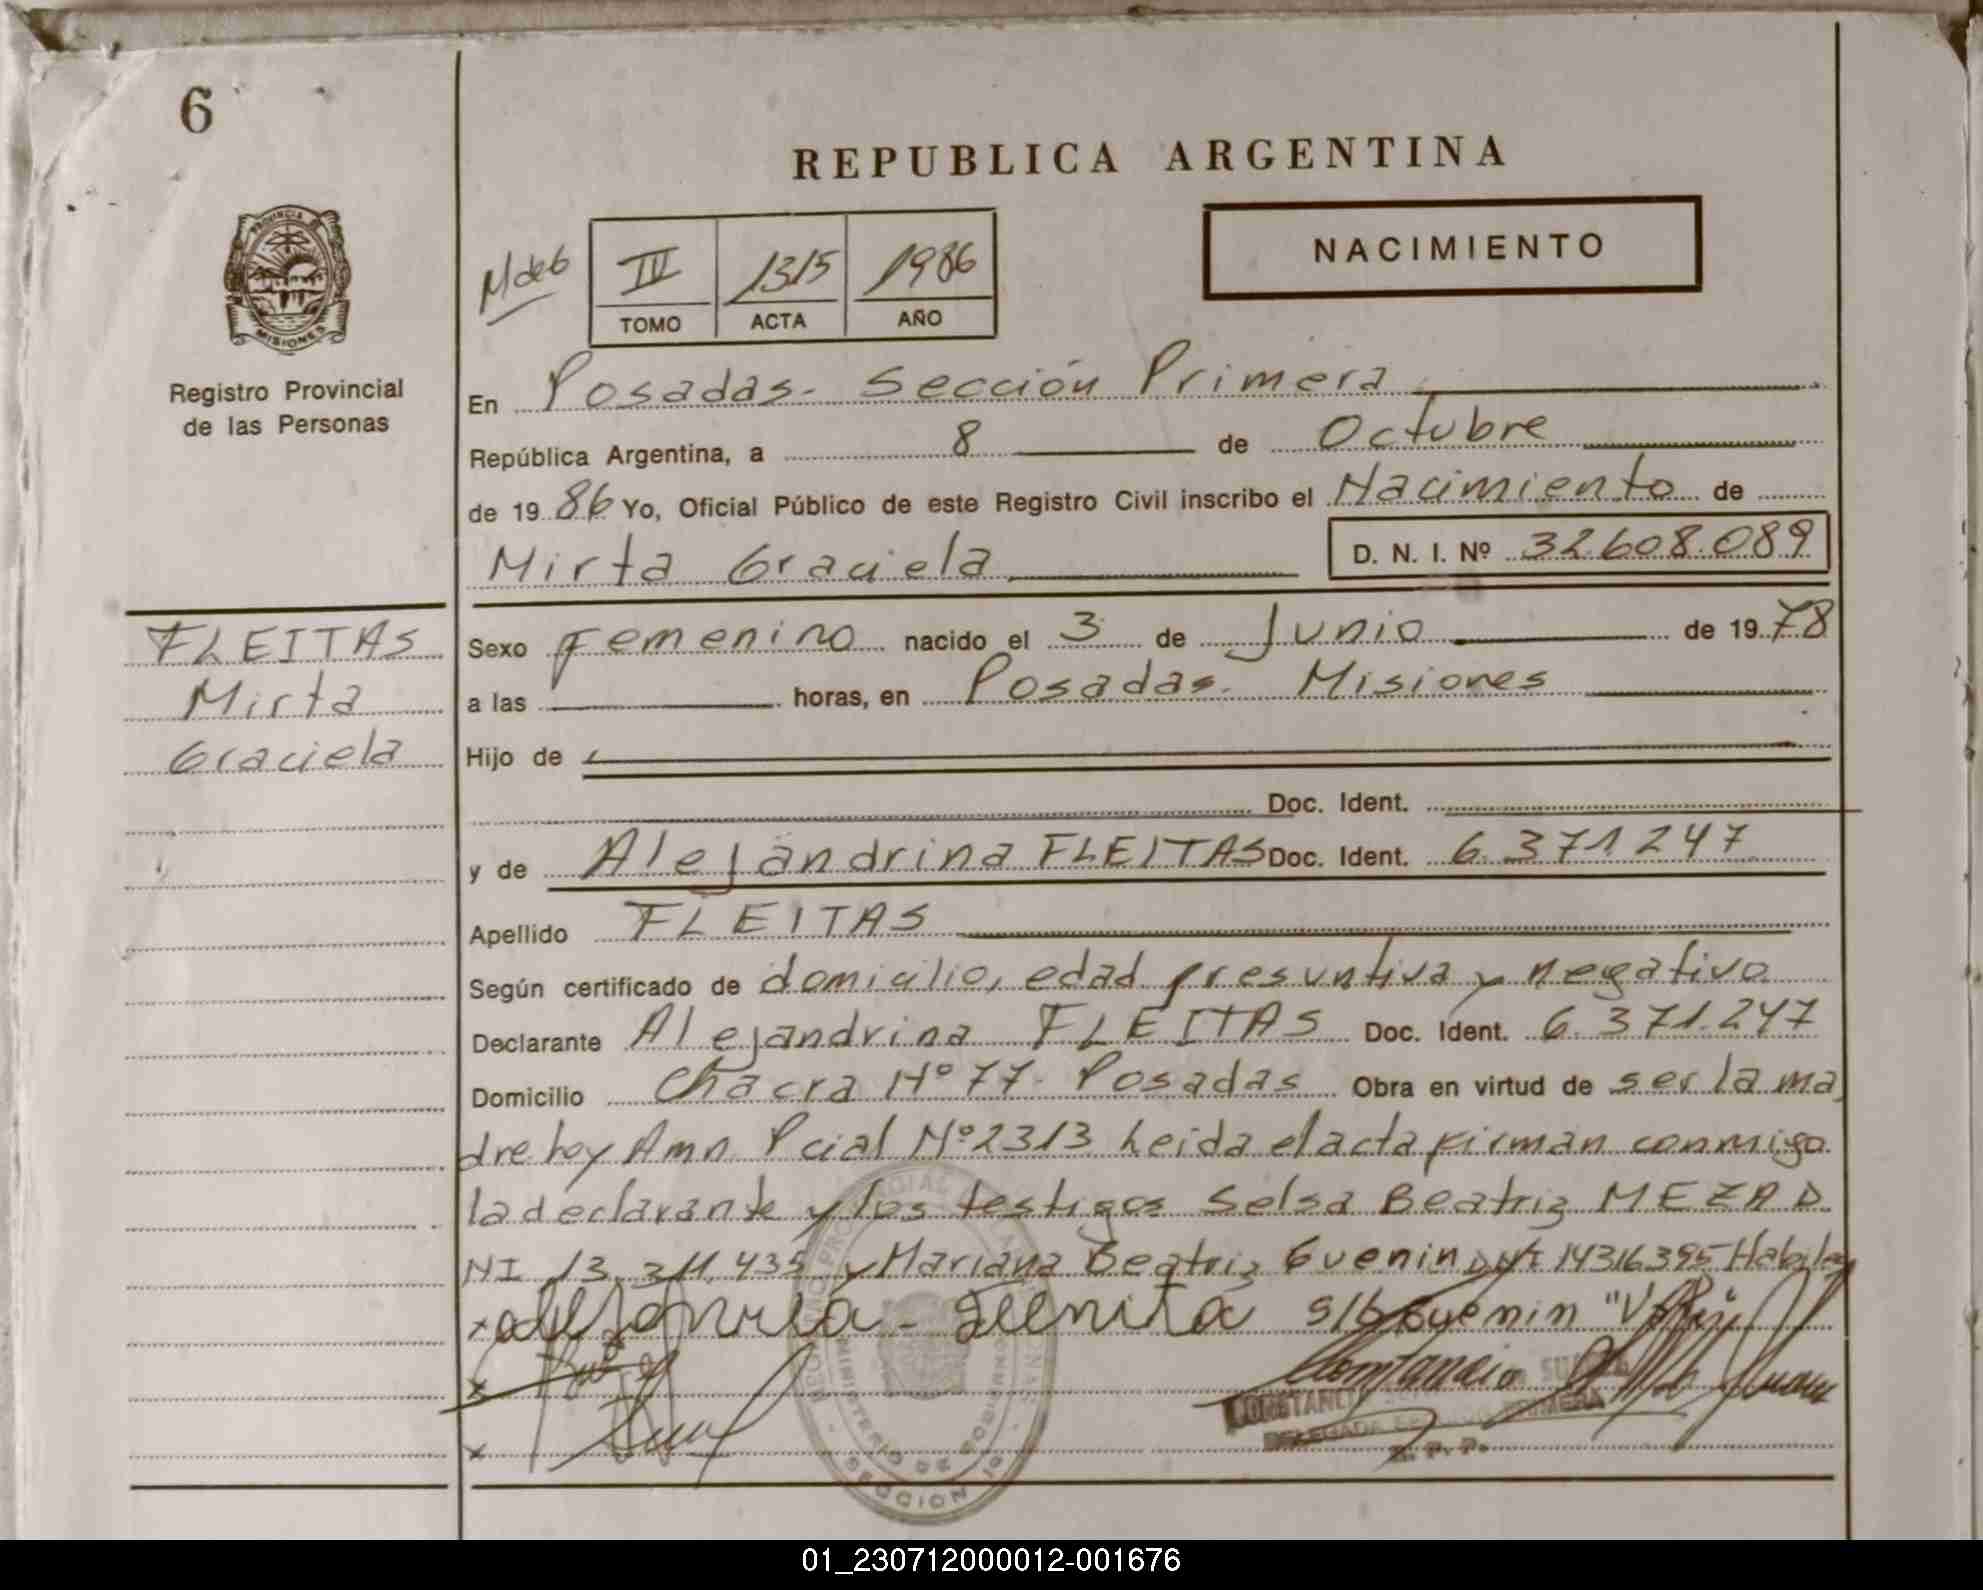 6
REPUBLICA ARGENTINA
NACIMIENTO
PROVINCIA DE
MISIONES
Registro Provincial
de las Personas
M de 6
IV 1315 1986
TOMO ACTA AÑO
En Posadas - Sección Primera
República Argentina, a 8 de Octubre
de 1986 Yo, Oficial Público de este Registro Civil inscribo el Nacimiento de
Mirta Graciela D. N. I. Nº 32.608.089
FLEITAS
Mirta
Graciela
Sexo Femenino nacido el 3 de Junio de 1978
a las horas, en Posadas - Misiones
Hijo de
Doc. Ident.
y de Alejandrina FLEITAS Doc. Ident. 6.371247
Apellido FLEITAS
Según certificado de domicilio, edad presuntiva y negativo
Declarante Alejandrina FLEITAS Doc. Ident. 6.371.247
Domicilio Chacra Nº 77 - Posadas Obra en virtud de ser la ma
dre hoy Amn. Pcial Nº 2313 Leida el acta firman conmigo
la declarante y los testigos Selsa Beatriz MEZA D
NI 13.311.435 y Mariana Beatriz Guenin DNI 14316395
s/b Guenin "Vale"
CONSTANCIO SUAREZ
DELEGADA SECCION PRIMERA
R. P. P.
MINISTERIO DE GOBIERNO
SECCION 1ª
01_230712000012-001676